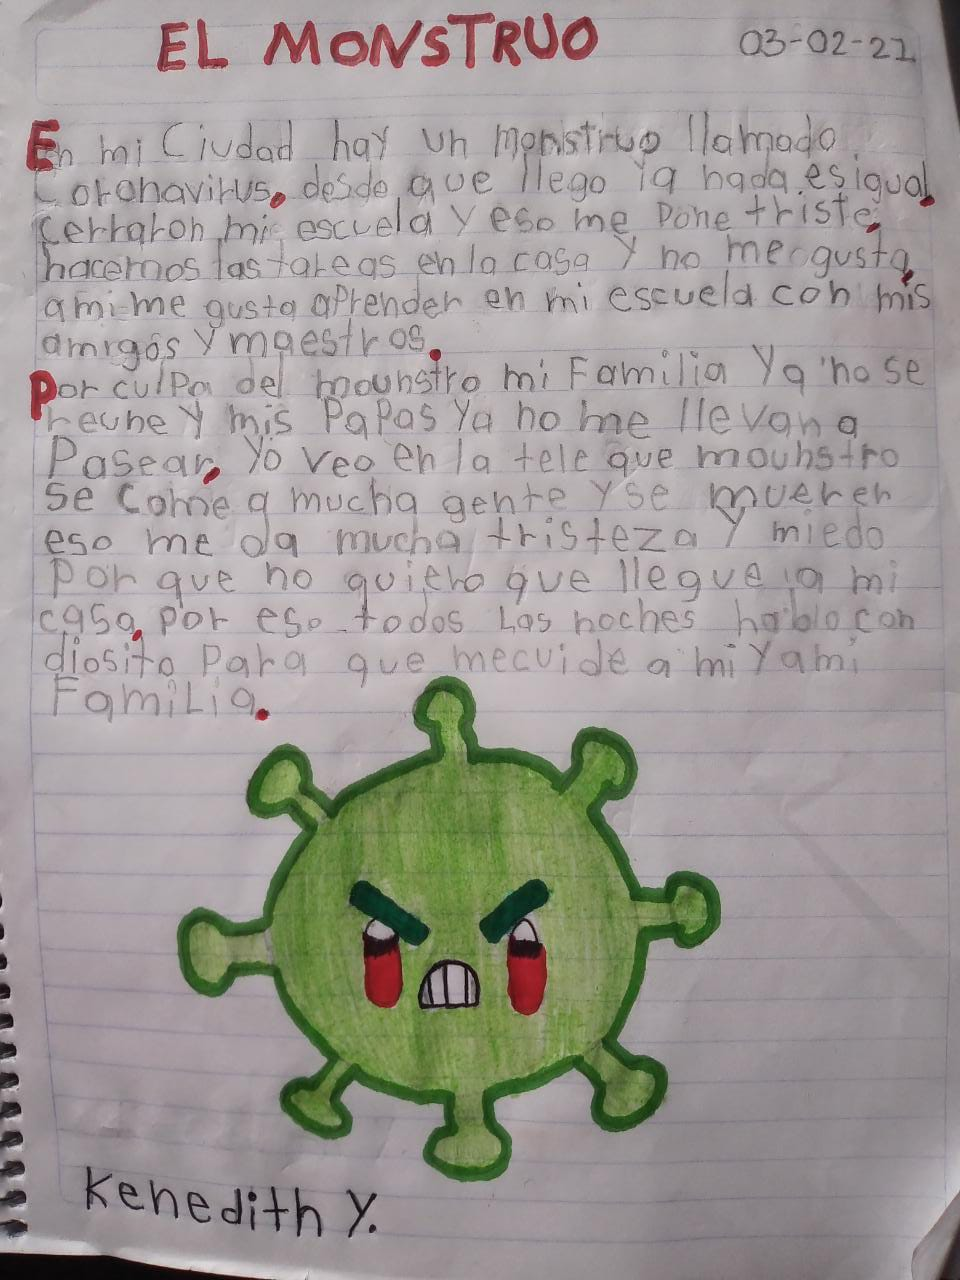 EL MONSTRUO
03-02-21
En mi Ciudad hay un monstruo llamado
Coronavirus. desde que llego ya nada es igual.
Cerraron mi escuela y eso me pone triste,
hacemos las tareas en la casa y no me gusta,
a mi me gusta aprender en mi escuela con mis
amigos y maestros.
Por culpa del mounstro mi Familia Ya no se
reune y mis Papas Ya no me llevan a
Pasear, Yo veo en la tele que mounstro
se come a mucha gente y se mueren
eso me da mucha tristeza y miedo
Por que no quiero que llegue a mi
casa, por eso todos Las noches hablo con
diosito Para que mecuide a mi y a mi
FamiLia.
Kenedith Y.